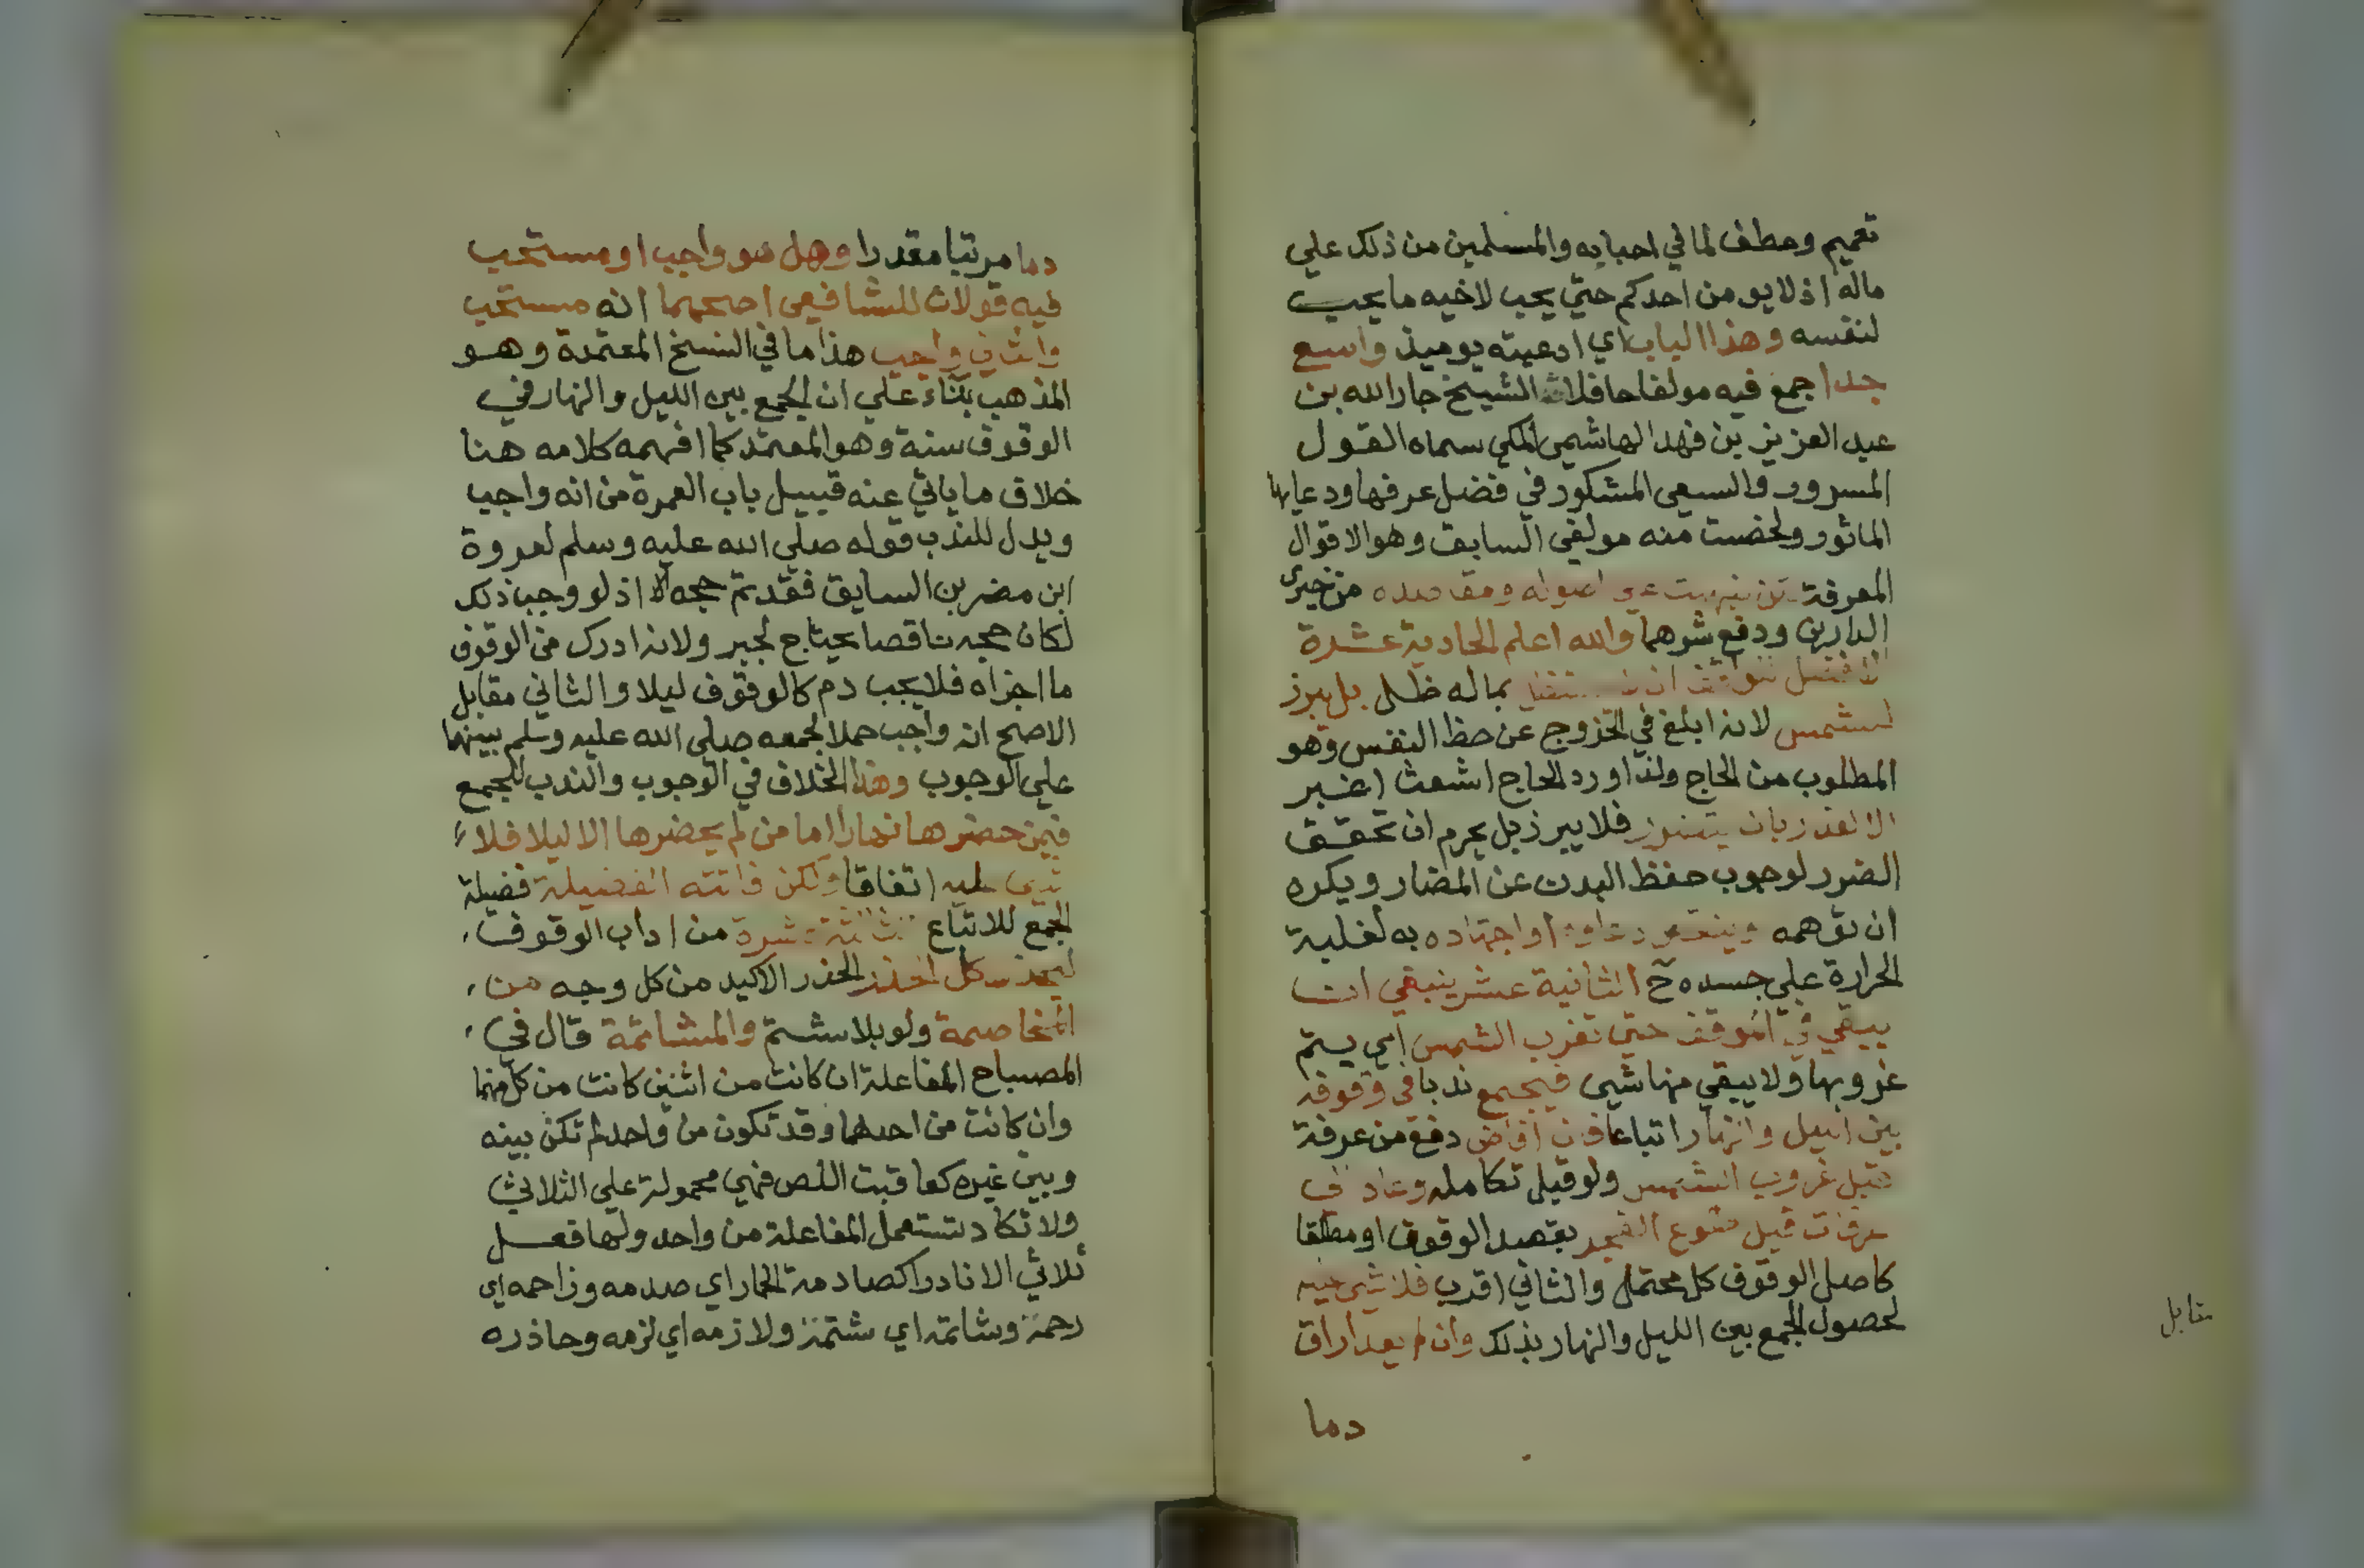 تعميم وعطف لما في احبايه والمسلمين من ذلك علي
ماله اذ لا يومن احدكم حتي يحب لاخيه ما يحب
لنفسه وهذا الباب اي ادعيته يوميذ واسع
جدا جمع فيه مولفا حافلا الشيخ جار الله بن
عبد العزيز بن فهد الهاشمي المكي سماه القول
المسرور والسعي المشكور في فضل عرفها ودعايها
الماثور ولخصت منه مولفي السابق وهو الاقوال
المعرفة اصوله ومقاصده من خيري
الدارين ودفع شرهما والله اعلم الحادية عشرة
الافضل للواقف ان لا يستظل بماله ظل بل يبرز
للشمس لانه ابلغ في الخروج عن حظ النفس وهو
المطلوب من الحاج ولذا ورد الحاج اشعث اغبر
الا لعذر بان يتضرر فلا يبرز بل يحرم ان تحقق
الضرر لوجوب حفظ البدن عن المضار ويكره
ان توهمه وينقص دعاوه او اجتهاده به لغلبة
الحرارة علي جسده ح الثانية عشر ينبغي ان
يبقي في الموقف حتي تغرب الشمس اي يستم
غروبها ولا يبقي منها شيي فيجمع ندبا في وقوفه
بين الليل والنهار اتباعا فان افاض دفع من عرفة
قبل غروب الشمس ولو قبل تكامله وعاد الي
عرفات قبل طلوع الفجر بقصد الوقوف او مطلقا
كاصل الوقوف كل محتمل والثاني اقرب فلا شيي عليه
لحصول الجمع بين الليل والنهار بذلك وان لم يعد اراق
دما
مقابل
دما مرتبا مقدرا وهل هو واجب او مستحب
فيه قولان للشافعي اصحهما انه مستحب
والثاني واجب هذا ما في النسخ المعتمدة وهو
المذهب بناء علي ان الجمع بين الليل والنهار في
الوقوف سنة وهو المعتمد كما افهمه كلامه هنا
خلاف ما ياتي عنه قبيل باب العمرة من انه واجب
ويدل للندب قوله صلي الله عليه وسلم لعروة
ابن مضرس السابق فقد تم حجه اذ لو وجب ذلك
لكان حجه ناقصا يحتاج لجبر ولانه ادرك من الوقوف
ما اجزاه فلا يجب دم كالوقوف ليلا والثاني مقابل
الاصح انه واجب حملا لجمعه صلي الله عليه وسلم بينهما
علي الوجوب وهذا الخلاف في الوجوب والندب للجمع
فيمن حضرها نهارا اما من لم يحضرها الا ليلا فلا
شيي عليه اتفاقا ولكن فاتته الفضيلة فضيلة
الجمع للاتباع الثالثة عشرة من اداب الوقوف
ليحذر كل الحذر الحذر الاكيد من كل وجه من
المخاصمة ولو بلا شتم والمشاتمة قال في
المصباح المفاعلة ان كانت من اثنين كانت من كل منهما
وان كانت من احدهما وقد تكون من واحد لم تكن بينه
وبين غيره كعاقبت اللص فهي محمولة علي الثلاثي
ولا تكاد تستعمل المفاعلة من واحد ولها فعل
ثلاثي الا نادرا كصادمة الحمار اي صدمه وزاحمه اي
زحمه وشاتمه اي شتمه ولازمه اي لزمه وحاذره